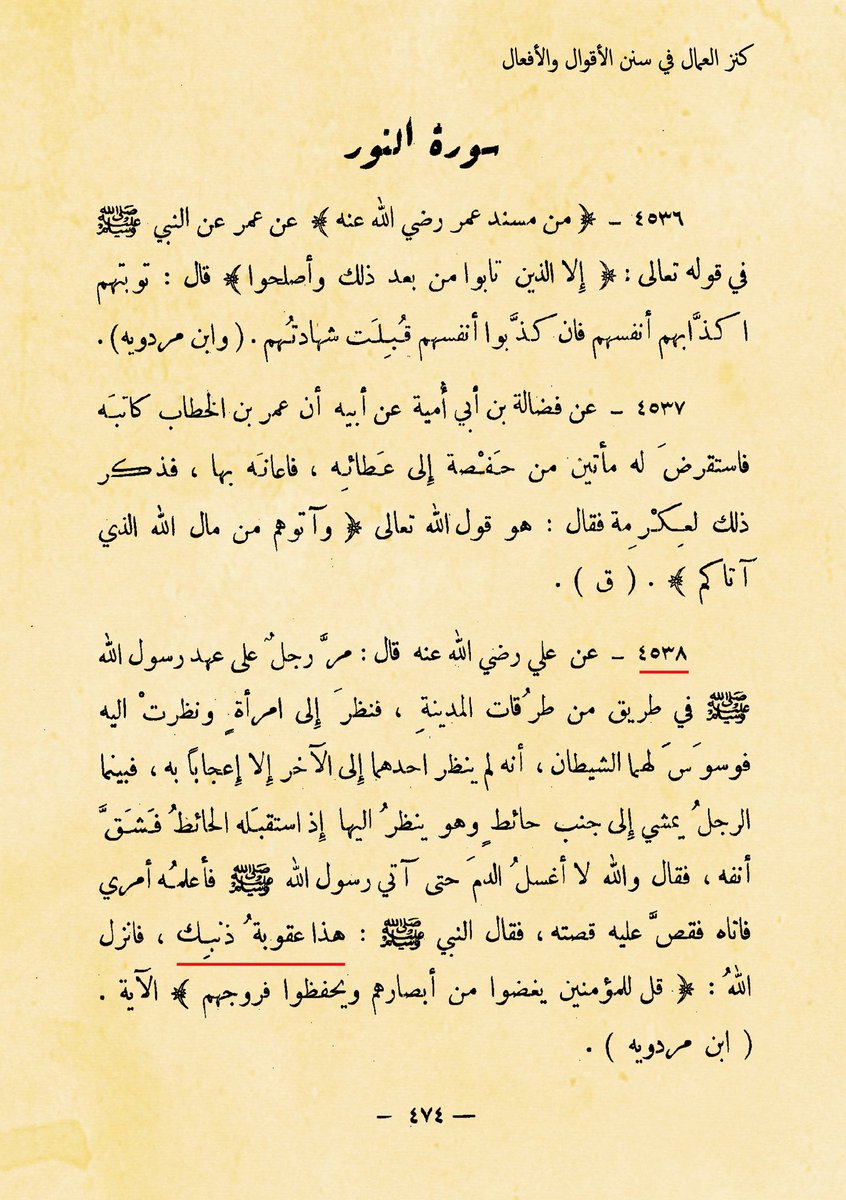 كنز العمال في سنن الأقوال والأفعال
سورة النور
٤٥٣٦ ـ ﴿ من مسند عمر رضي الله عنه ﴾ عن عمر عن النبي ﷺ
في قوله تعالى : ﴿ إلا الذين تابوا من بعد ذلك وأصلحوا ﴾ قال : توبتهم
اكذَّابهم أنفسهم فان كذَّبوا أنفسهم قُبِلَت شهادتُهم . ( وابن مردويه ) .
٤٥٣٧ ـ عن فضالة بن أبي أُمية عن أبيه أن عمر بن الخطاب كاتبَه
فاستقرضَ له مأتين من حَفْصة إلى عَطائه ، فاعانَه بها ، فذكر
ذلك لعِكْرِمة فقال : هو قول الله تعالى ﴿ وآتوهم من مال الله الذي
آتاكم ﴾ . ( ق ) .
٤٥٣٨ ـ عن علي رضي الله عنه قال : مرَّ رجلٌ على عهد رسول الله
ﷺ في طريق من طرُقات المدينةِ ، فنظرَ إلى امرأةٍ ونظرتْ اليه
فوسوَسَ لهما الشيطان ، أنه لم ينظر احدهما إلى الآخر إلا إعجاباً به ، فبينما
الرجلُ يمشي إلى جنب حائطٍ وهو ينظرُ اليها إذ استقبَله الحائطُ فَشَقَّ
أنفه ، فقال والله لا أغسلُ الدمَ حتى آتي رسول الله ﷺ فأعلمُه أمري
فاتاه فقصَّ عليه قصته ، فقال النبي ﷺ : هذا عقوبةُ ذنبِك ، فانزل
اللهُ : ﴿ قل للمؤمنين يغضوا من أبصارهم ويحفظوا فروجهم ﴾ الآية .
( ابن مردويه ) .
— ٤٧٤ —